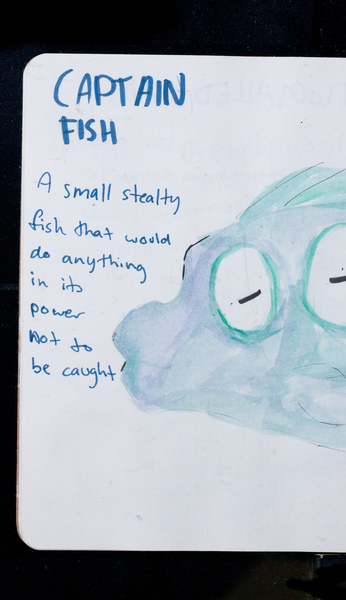 CAPTAIN
FISH
A small stealty
fish that would
do anything
in its
power
Not to
be caught